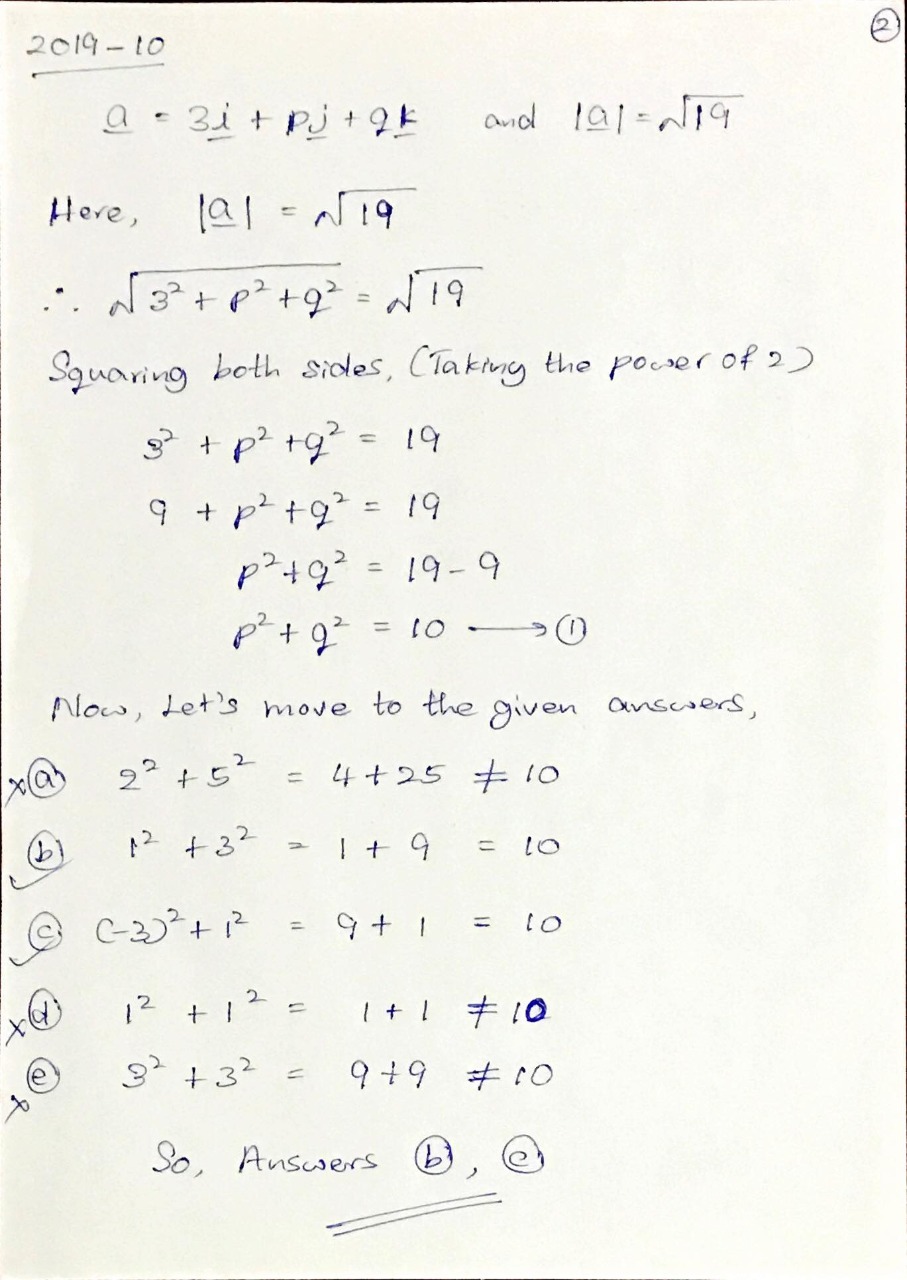 ②
2019-10
a = 3i + pj + qk and |a| = √19
Here, |a| = √19
∴ √3² + p² + q² = √19
Squaring both sides, (Taking the power of 2)
3² + p² + q² = 19
9 + p² + q² = 19
p² + q² = 19 - 9
p² + q² = 10 → ①
Now, Let's move to the given answers,
×ⓐ 2² + 5² = 4 + 25 ≠ 10
✓ⓑ 1² + 3² = 1 + 9 = 10
✓ⓒ (-3)² + 1² = 9 + 1 = 10
×ⓓ 1² + 1² = 1 + 1 ≠ 10
×ⓔ 3² + 3² = 9 + 9 ≠ 10
So, Answers ⓑ, ⓒ